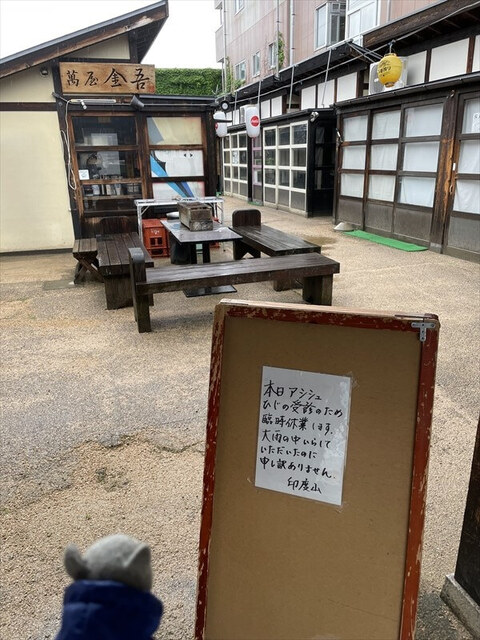 萬屋 金吾
本日アシシュ
ひじの受診のため
臨時休業します。
大雨の中いらして
いただいたのに
申し訳ありません。
印度山